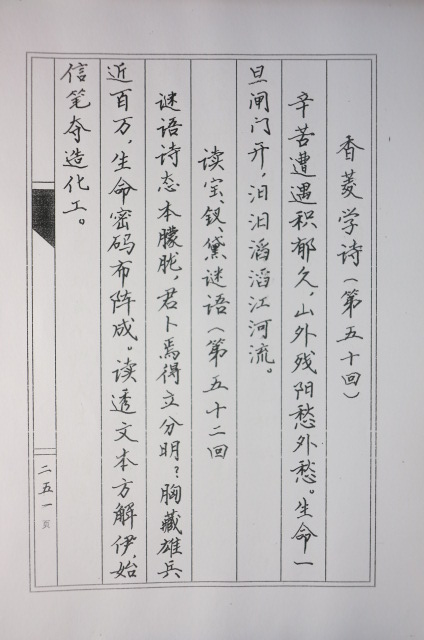 香菱学诗（第五十回）
辛苦遭遇积郁久，山外残阳愁外愁。生命一
旦闸门开，汩汩滔滔江河流。
读宝、钗、黛谜语（第五十二回
谜语诗态本朦胧，君卜焉得立分明？胸藏雄兵
近百万，生命密码布阵成。读透文本方解伊，始
信笔夺造化工。
二五一页